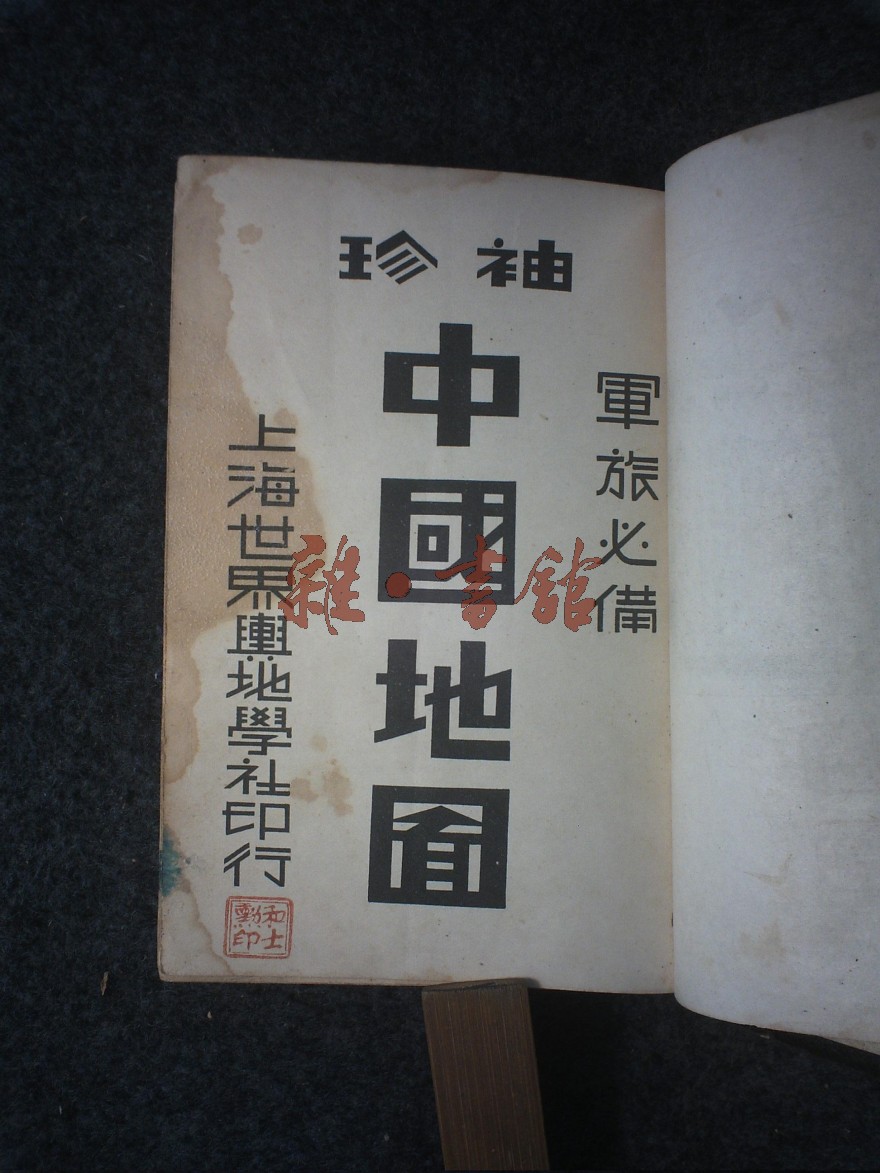 袖珍
軍旅必備
中國地圖
上海世界輿地學社印行
雜·書館